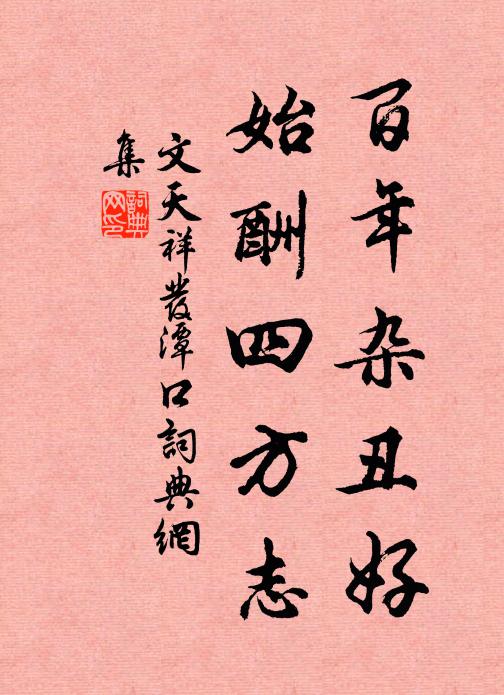 百年杂丑好
始酬四方志
文天祥發潭口詞典網
集
詞典
网印